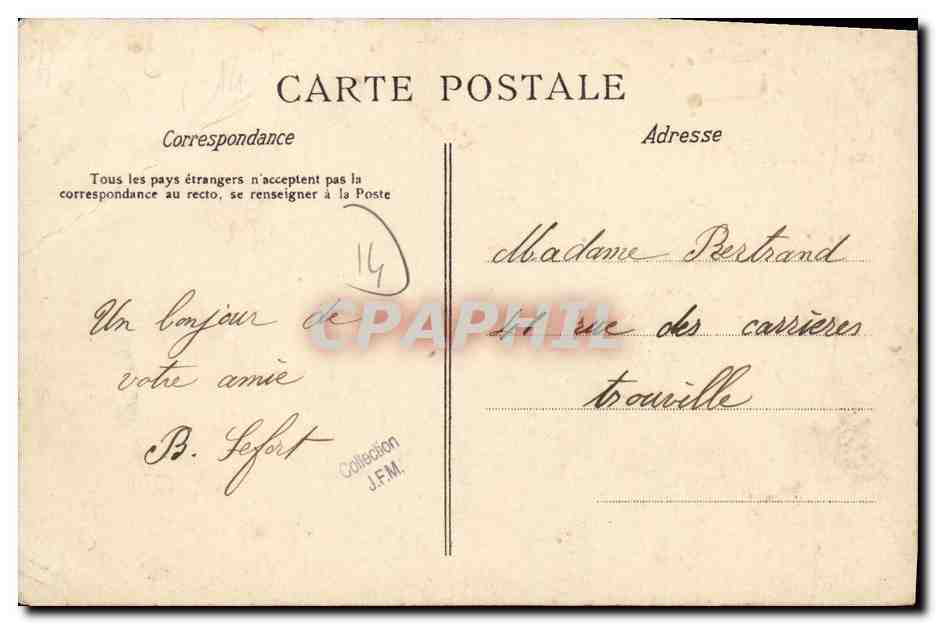 CARTE POSTALE
Correspondance
Tous les pays étrangers n'acceptent pas la
correspondance au recto, se renseigner à la Poste
14
Un bonjour de
votre amie
B. Lefort
Collection
J.F.M.
CPAPHIL
Adresse
Madame Bertrand
rue des carrieres
trouville